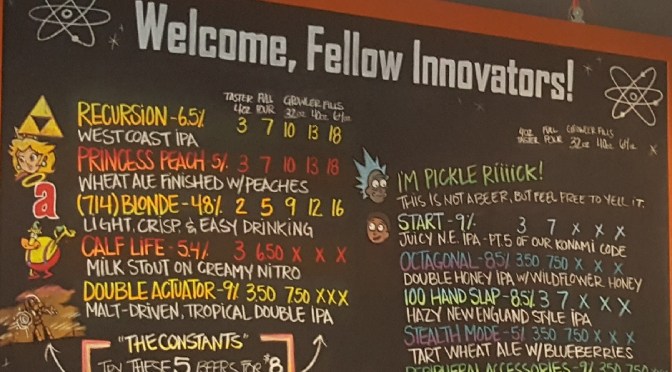 Welcome, Fellow Innovators!
TASTER FULL GROWLER FILLS
4oz POUR 32oz 40oz 64oz
RECURSION - 6.5% 3 7 10 13 18
WEST COAST IPA
PRINCESS PEACH 5% 3 7 10 13 18
WHEAT ALE FINISHED W/PEACHES
a
(714) BLONDE - 4.8% 2 5 9 12 16
LIGHT, CRISP, & EASY DRINKING
CALF LIFE - 5.4% 3 650 X X X
MILK STOUT ON CREAMY NITRO
DOUBLE ACTUATOR - 9% 350 750 X X X
MALT-DRIVEN, TROPICAL DOUBLE IPA
"THE CONSTANTS"
TRY THESE 5 BEERS FOR $8
4oz FULL GROWLER FILLS
TASTER POUR 32oz 40oz 64oz
I'M PICKLE RiiiiCK!
THIS IS NOT A BEER, BUT FEEL FREE TO YELL IT.
START - 9% 3 7 X X X
JUICY N.E. IPA - PT.5 OF OUR KONAMI CODE
OCTAGONAL - 8.5% 350 750 X X X
DOUBLE HONEY IPA W/WILDFLOWER HONEY
100 HAND SLAP - 8.5% 3 7 X X X
HAZY NEW ENGLAND STYLE IPA
STEALTH MODE - 5% 350 750 X X X
TART WHEAT ALE W/BLUEBERRIES
PERIPHERAL ACCESSORIES - 9% 350 750